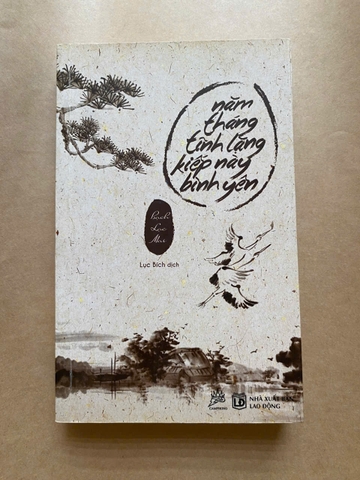 năm
tháng
tĩnh lặng
kiếp này
bình yên
Bạch
Lạc
Mai
Lục Bích dịch
LĐ
NHÀ XUẤT BẢN
LAO ĐỘNG